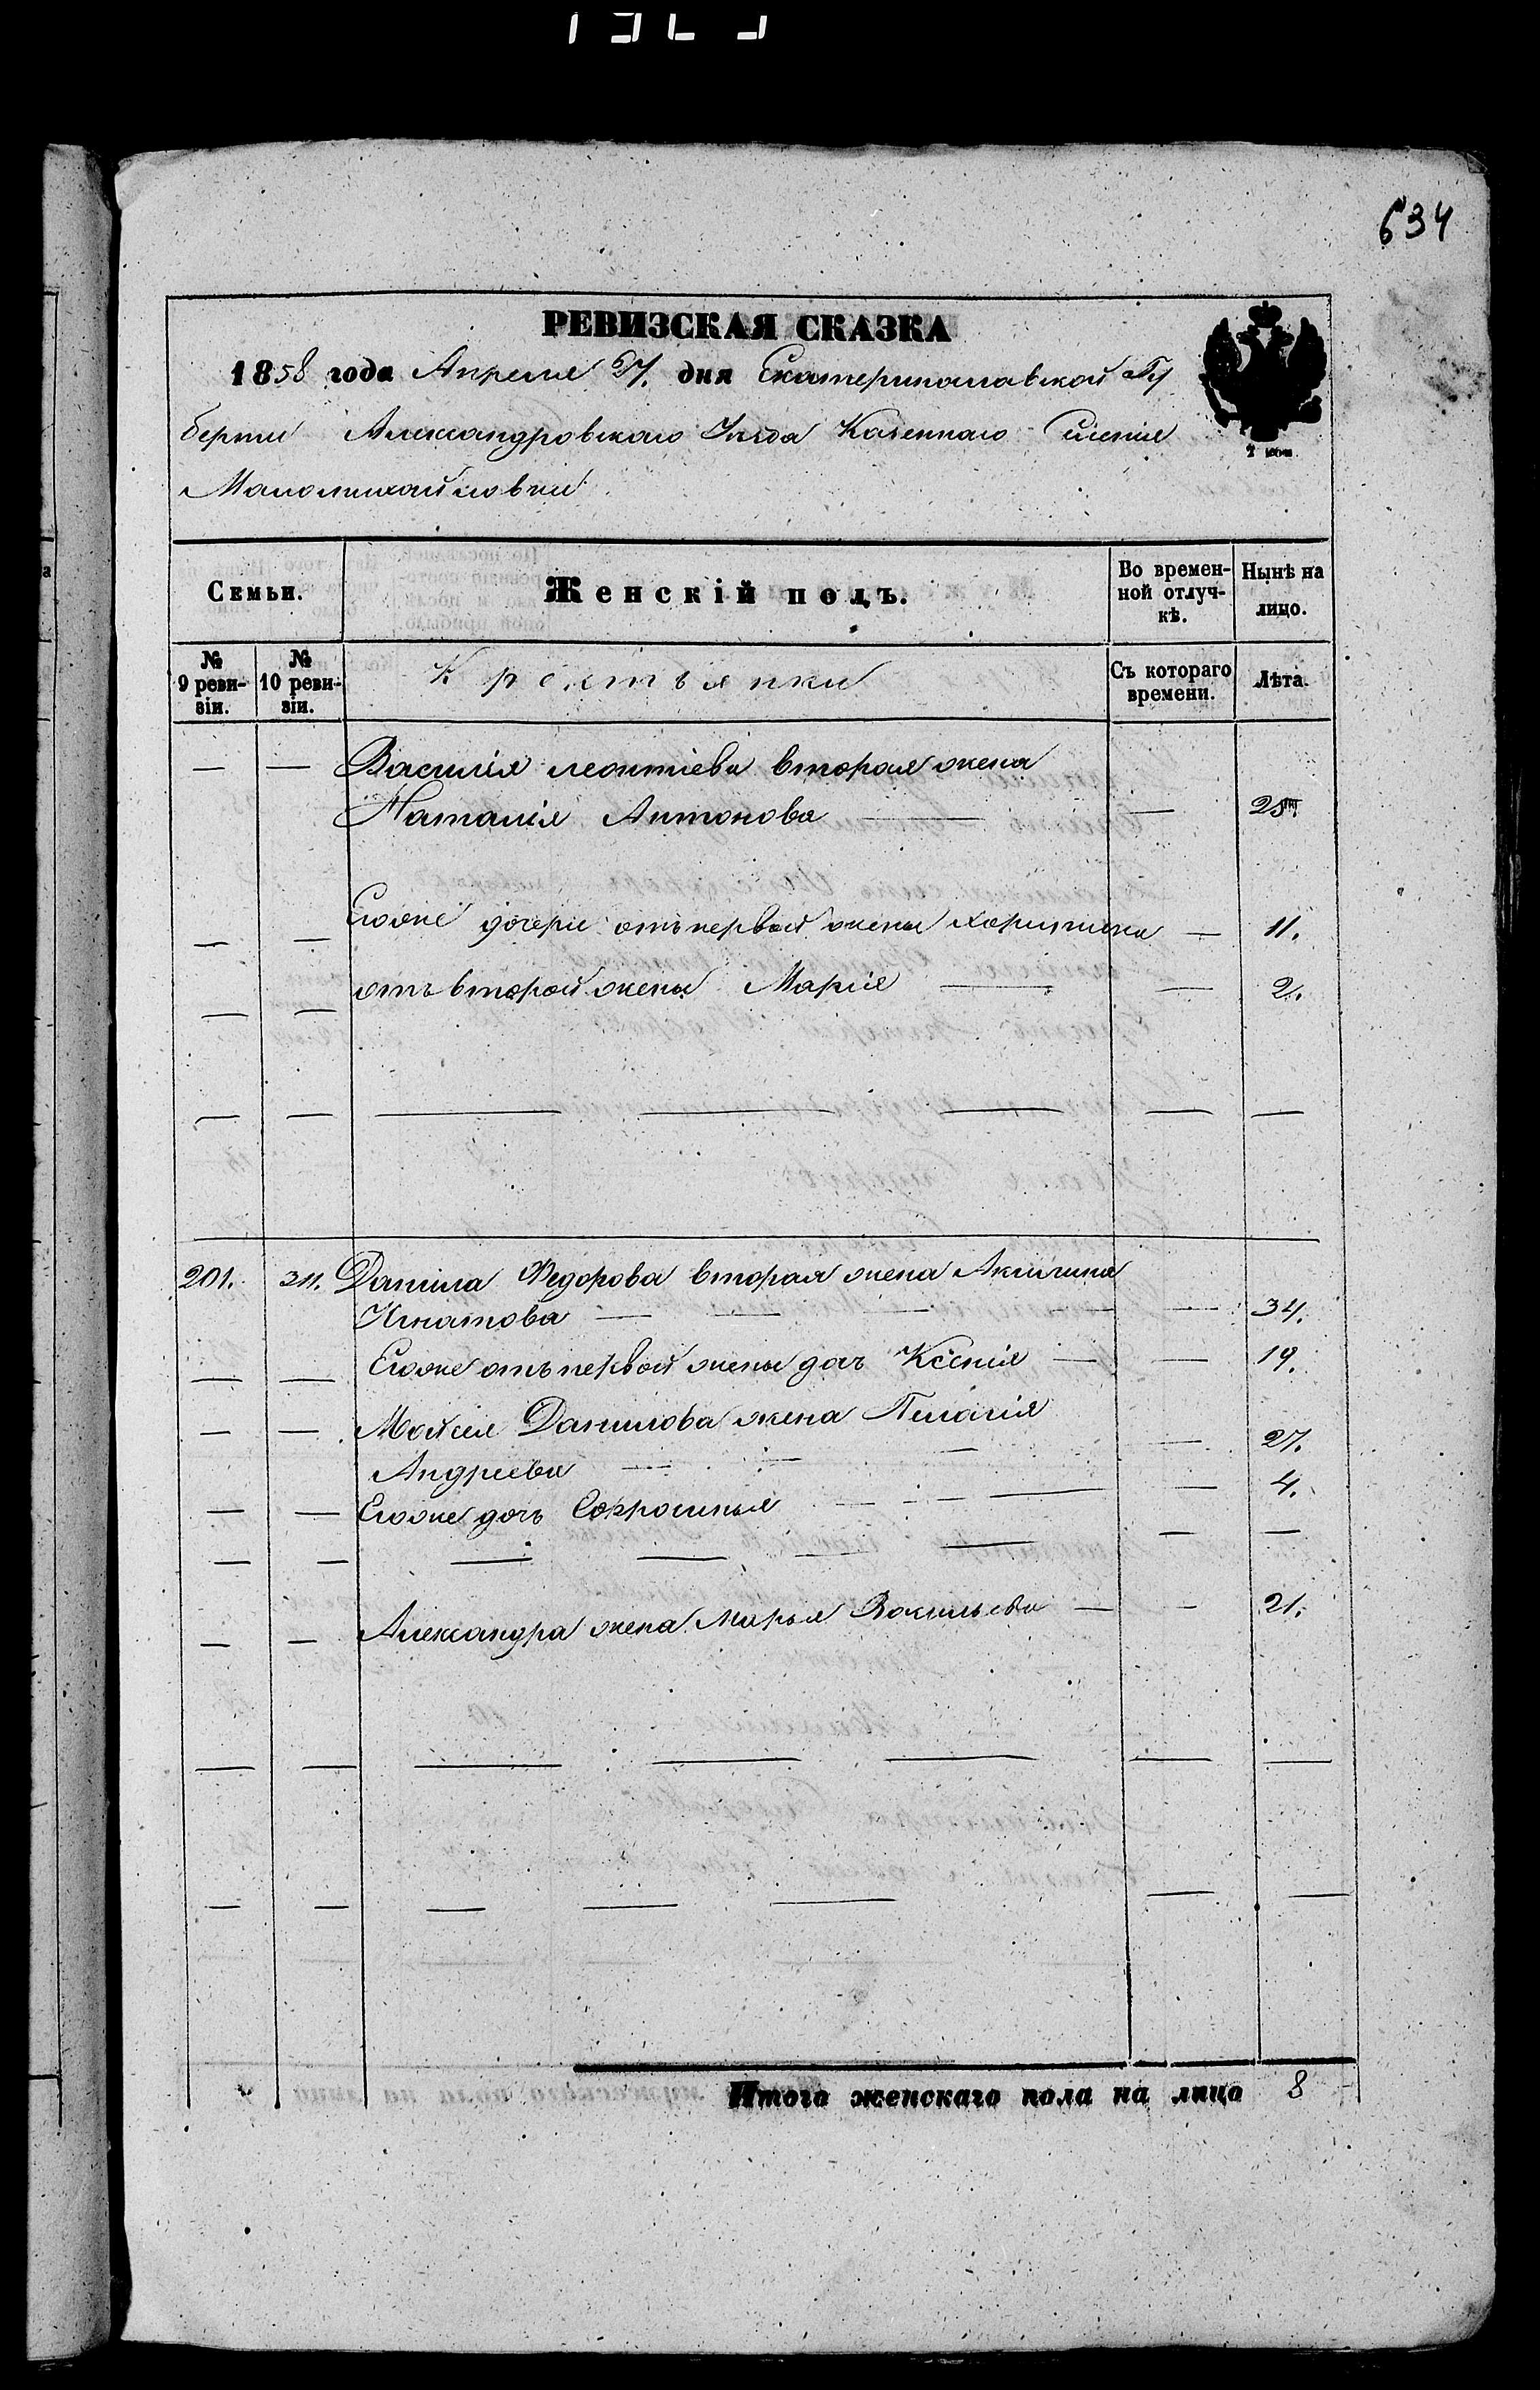 634
РЕВИЗСКАЯ СКАЗКА
1858 года Апреля 27. дня Екатеринославской Гу
берніи Александровскаго Уѣзда Казеннаго Селенія
Маломихайловки
2 коп.
Семьи.
Женскій полъ.
Во времен-
ной отлуч-
кѣ.
Нынѣ на
лицо.
№
9 реви-
зіи.
№
10 реви-
зіи.
Крестьянки
Съ котораго
времени.
Лѣта.
— — Василія Леонтіева вторая жена
Наталія Антонова — —
— — Егоже дочери отъ первой жены Харитина — 11.
— — отъ второй жены Марія — — 2.
— — — — — — —
201. 211. Данила Федорова вторая жена Акилина
Игнатова — — — — — 34.
— — Егоже отъ первой жены дочь Ксенія — — 19.
— — Мойсея Данилова жена Пелагія
Андреева — — — — 27.
— — Егоже дочь Евфросинья — — — — 4.
— — — — — — — —
— — Александра жена Марья Васильева — — 21.
— — — — — — —
— — — — — — —
Итого женскаго пола на лицо 8